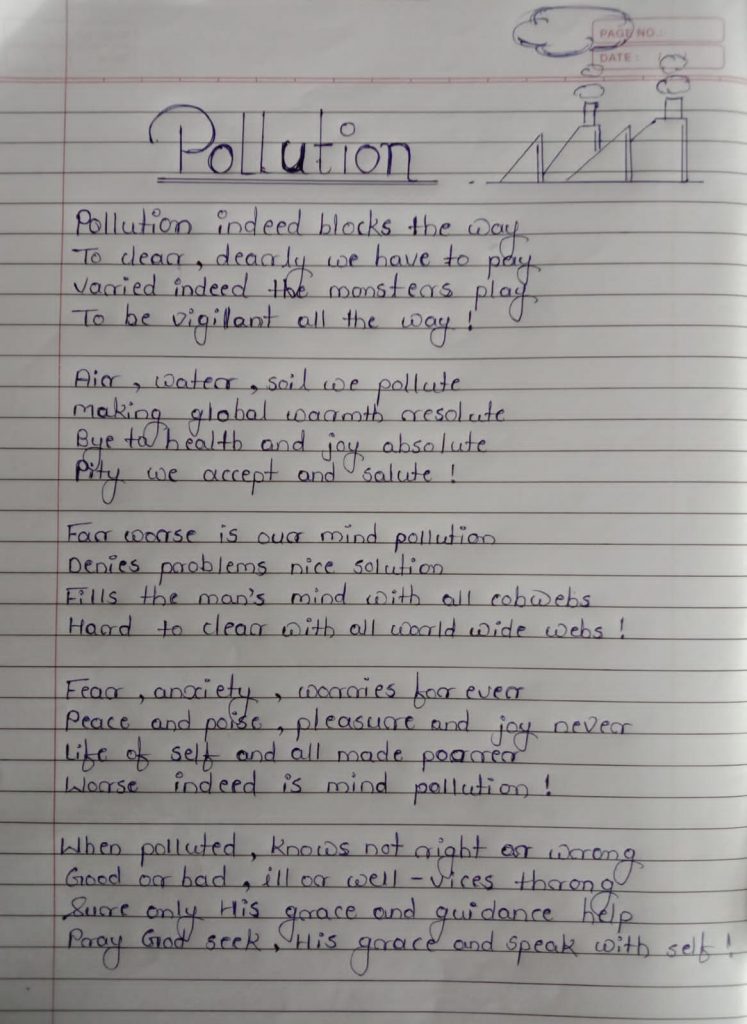 PAGE NO.:
DATE:
Pollution
Pollution indeed blocks the way
To clear, dearly we have to pay
Varied indeed the monsters play
To be vigillant all the way!
Air, water, soil we pollute
Making global warmth resolute
Bye to health and joy absolute
Pity we accept and salute!
Far worse is our mind pollution
Denies problems nice solution
Fills the man's mind with all cobwebs
Hard to clear with all world wide webs!
Fear, anxiety, worries for ever
Peace and poise, pleasure and joy never
Life of self and all made poorer
Worse indeed is mind pollution!
When polluted, knows not right or wrong
Good or bad, ill or well-vices throng
Sure only His grace and guidance help
Pray God seek, His grace and speak with self!